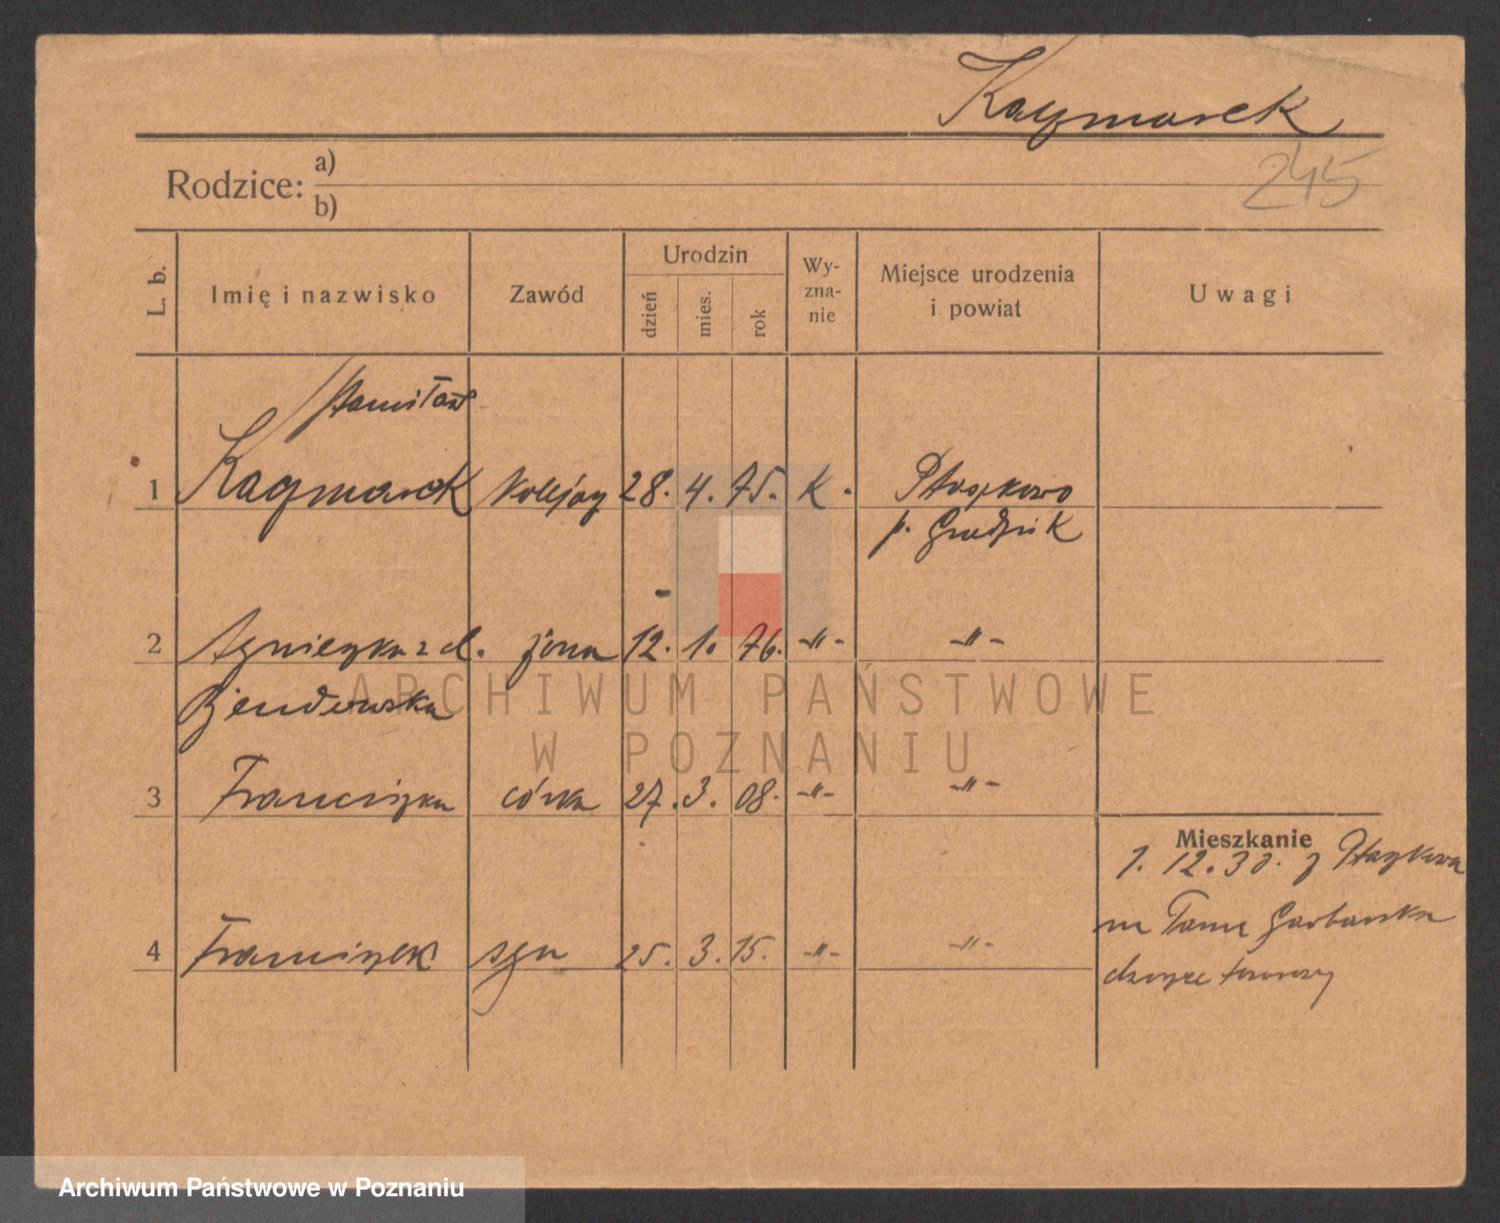 Kaczmarek
245
Rodzice: a)
b)
L. b.
Imię i nazwisko
Zawód
Urodzin
dzień
mies.
rok
Wy-
zna-
nie
Miejsce urodzenia
i powiat
Uwagi
Stanisław
1 Kaczmarek kolejarz 28. 4. 75. K. Ptaszkowo
p. Grodzisk
2 Agnieszka z d. żona 12. 1. 76. -"- -"-
3 Franciszka córka 27. 3. 08. -"- -"-
Mieszkanie
1. 12. 30. z Ptaszkowa
na Tama Garbarska
dworzec towarowy
4 Franciszek syn 25. 3. 15. -"- -"-
ARCHIWUM PAŃSTWOWE
W POZNANIU
Archiwum Państwowe w Poznaniu